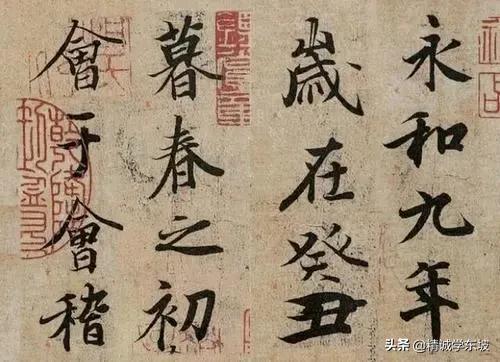 永和九年
歲在癸丑
暮春之初
會于會稽
头条 @精诚学东坡